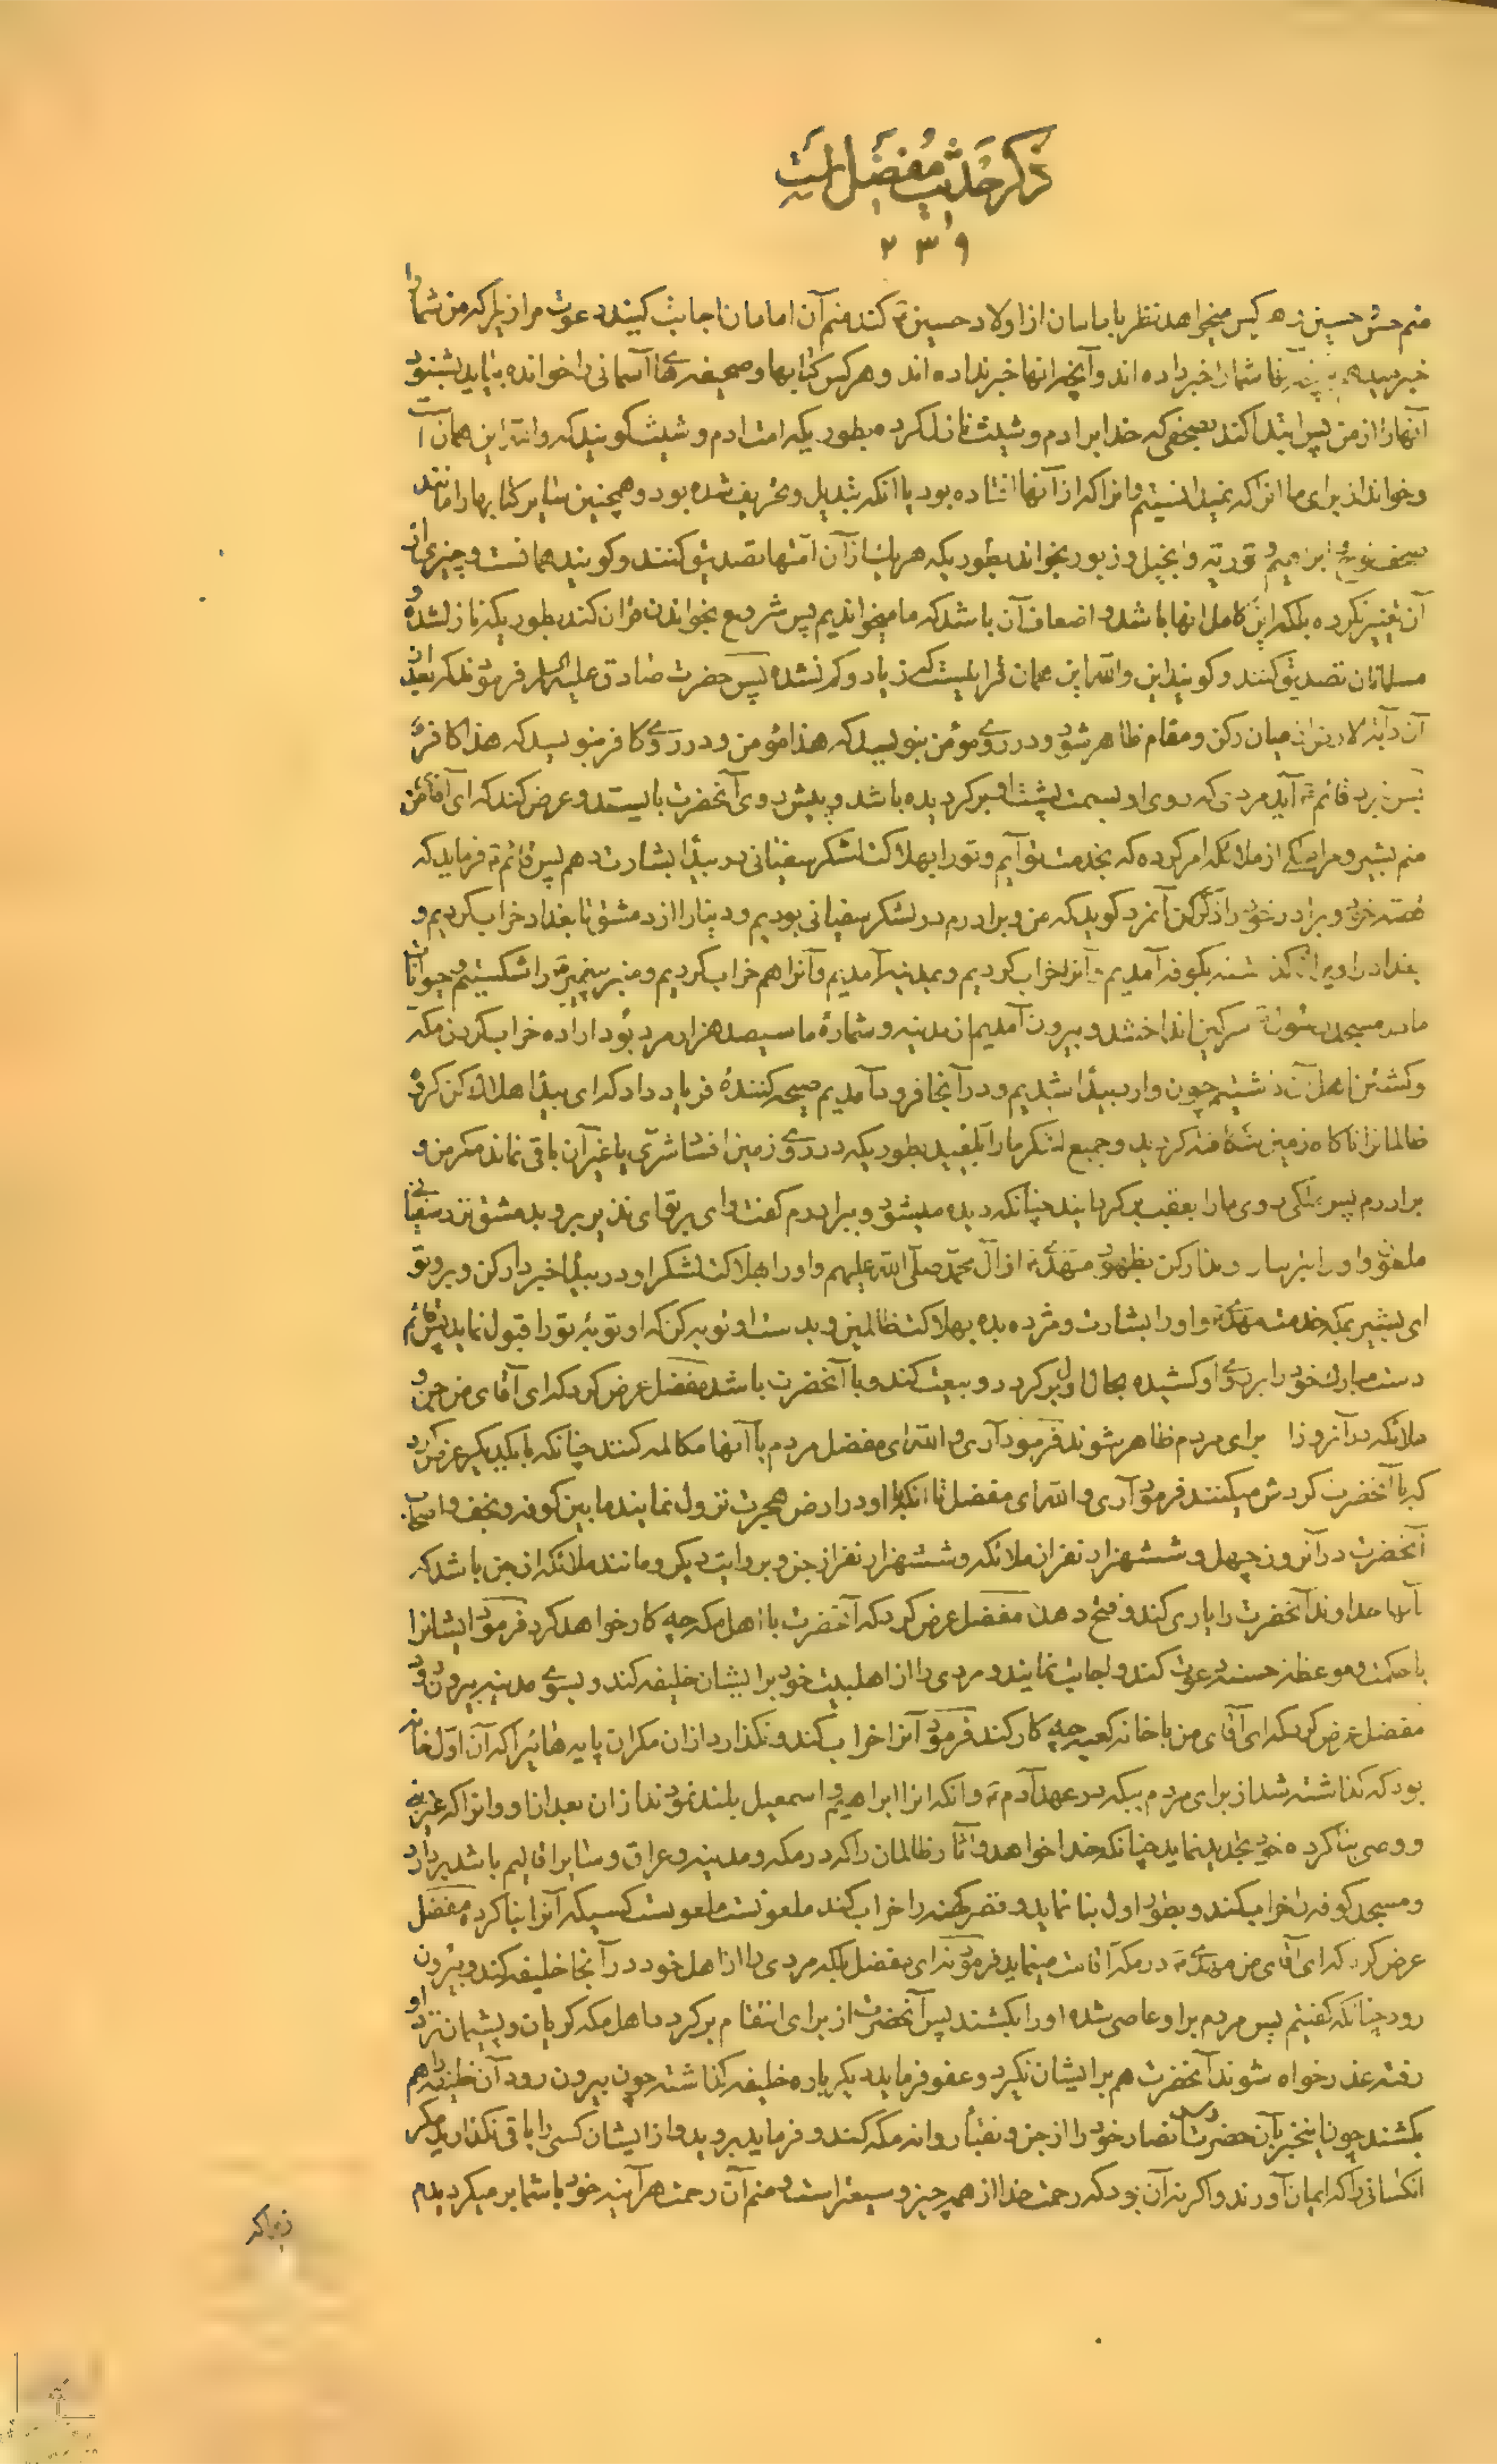 ذکر حدیث مفضل است
۲۳۹
منم حسن حسین هر کس میخواهد نظر باماما ن از اولاد حسین کند منم آن امامان اجابت کنید دعوت مرا زیرا که من شما را
خبر شما را خبر داده اند و آنچه انها خبر نداده اند و هر کس کتابها و صحیفه های آسمانی را خوانده بیاید بشنود
آنها را از من پس ابتدا کند بصحفی که خدا بر ادم و شیث نازل کرده بطوریکه امت ادم و شیث گویند که والله این همان است
و خواند از برای ما انرا که نمیدانستیم و انرا که از آنها افتاده بود یا انکه تبدیل و تحریف شده بود و همچنین سایر کتابها را مانند
صحف نوح و ابراهیم و توریة و انجیل و زبور بخواند بطوریکه هر یک از آن امتها تصدیق کنند و گویند همانست و چیزی از
آن تغییر نکرده بلکه این کامل انها باشد و اضعاف آن باشد که ما میخواندیم پس شروع بخواندن قران کند بطوریکه نازل شده و
مسلمانان تصدیق کنند و گویند این والله این همان قرانیست که زیاد و کم نشده پس حضرت صادق علیه السلام فرمود که بعد از
آن دابة الارض از میان رکن و مقام ظاهر شود و در روی مؤمن بنویسد که هذا مؤمن و در روی کافر بنویسد که هذا کافر
پس نزد قائم آید مردی که روی او بسمت پشت او برگردیده باشد و پیش روی آنحضرت بایستد و عرض کند که ای آقای من
منم بشیر و مرا ملکی از ملائکه امر کرده که بخدمت تو آیم و تو را بهلاکت لشکر سفیانی در بیدا بشارت دهم پس قائم فرماید که
قصه خود و برادر خود را ذکر کن آنمرد گوید که من و برادرم در لشکر سفیانی بودیم و دنیا را از دمشق تا بغداد خراب کردیم و
بغداد را ویران گذاشته بکوفه آمدیم و آنرا خراب کردیم و بمدینه آمدیم و آنرا هم خراب کردیم و منبر پیغمبر را شکستیم و حیوانات
ما در مسجد سرکین انداختند و بیرون آمدیم از مدینه و شماره ما سیصد هزار مرد بود اراده خراب کردن مکه
و کشتن اهل آن داشتیم چون وارد بیدا شدیم و در آنجا فرود آمدیم صیحه کننده فریاد داد که ای بیدا هلاک کن گروه
ظالمانرا ناگاه زمین شکافته گردید و جمیع لشکر ما را بلعید بطوریکه در روی زمین افسار شتری یا غیر آن باقی نماند مگر من و
برادرم پس ملکی روی ما را بعقب برگردانید چنانکه دیده میشود و ببرادرم گفت وای بر تو ای نذیر برو بدمشق نزد سفیانی
ملعون و او را بترسان و انذار کن بظهور مهدی از آل محمد صلی الله علیهم و او را بهلاکت لشکر او در بیدا خبردار کن و برو تو
ای بشیر بمکه خدمت مهدی و او را بشارت و مژده بده بهلاکت ظالمین و بدست او توبه کن که او توبه تو را قبول نماید پس قائم
دست مبارک خود را بروی او کشیده بحال اول برگردد و بیعت کند و با آنحضرت باشد مفضل عرض کرد که ای آقای من جن و
ملائکه در آنروز برای مردم ظاهر شوند فرمود آری والله ای مفضل مردم با آنها مکالمه کنند چنانکه با یکدیگر عرض کرد
که با آنحضرت گردش میکنند فرمود آری والله ای مفضل تا انکه با او در ارض هجرت نزول نمایند مابین کوفه و نجف و اصحاب
آنحضرت در آنروز چهل و شش هزار نفر از ملائکه و شش هزار نفر از جن و بروایت دیگر و مانند ملائکه از جن باشد که
آنها خداوند آنحضرت را یاری کند و فتح دهد مفضل عرض کرد که آنحضرت با اهل مکه چه کار خواهد کرد فرمود ایشانرا
با حکمت و موعظه حسنه دعوت کند و اجابت نمایند و مردی را از اهلبیت خود بر ایشان خلیفه کند و بسوی مدینه بیرون رود
مفضل عرض کرد که ای آقای من با خانه کعبه چه کار کند فرمود آنرا خراب کند و نگذارد از ان مگر ان پایه هائیرا که آن اول خانه
بود که گذاشته شد از برای مردم ببکه در عهد آدم و انکه انرا ابراهیم و اسمعیل بلند نمودند از ان بعد از او و انرا که غیر نبی
و وصی بنا کرده خود تجدید نماید چنانکه خدا خواهد و آثار ظالمان را که در مکه و مدینه و عراق و سایر اقالیم باشد بردارد
و مسجد کوفه را خراب کند و بطور اول بنا نماید و قصر کهنه را خراب کند ملعونست ملعونست کسیکه آنرا بنا کرده مفضل
عرض کرد که ای آقای من مهدی در مکه اقامت مینماید فرمود نه ای مفضل بلکه مردی را از اهل خود در آنجا خلیفه کند و بیرون
رود چنانکه گفتیم پس مردم بر او عاصی شده او را بکشند پس آنحضرت از برای انتقام برگردد اهل مکه گریان و پشیمان نزد او
رفته عذر خواه شوند آنحضرت هم بر ایشان نگیرد و عفو فرماید دیگر باره خلیفه گذاشته چون بیرون رود آن خلیفه را هم
بکشند چون اینخبر بآن حضرت رسد انصار خود را از جن و نقبا روانه مکه کند و فرماید بروید و از ایشان کسی را باقی نگذارید مگر
انکسانی را که ایمان آورند و اگر نه آن بود که رحمت خدا از همه چیز وسیعتر است و منم آن رحمت هر آینه خود با شما برمیگردیدم
زیرا که